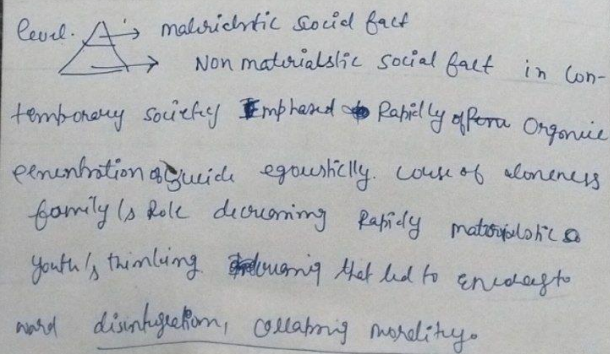 level. → materialistic social fact
→ Non materialslic social fact in Con-
temporary society Emphased Rapidly of Organic
of Suicide egoustically. cause of aloneness
family is Role decreasing Rapidly materialistic
youth's thinking that led to
ward disintegration, collabsing morality.